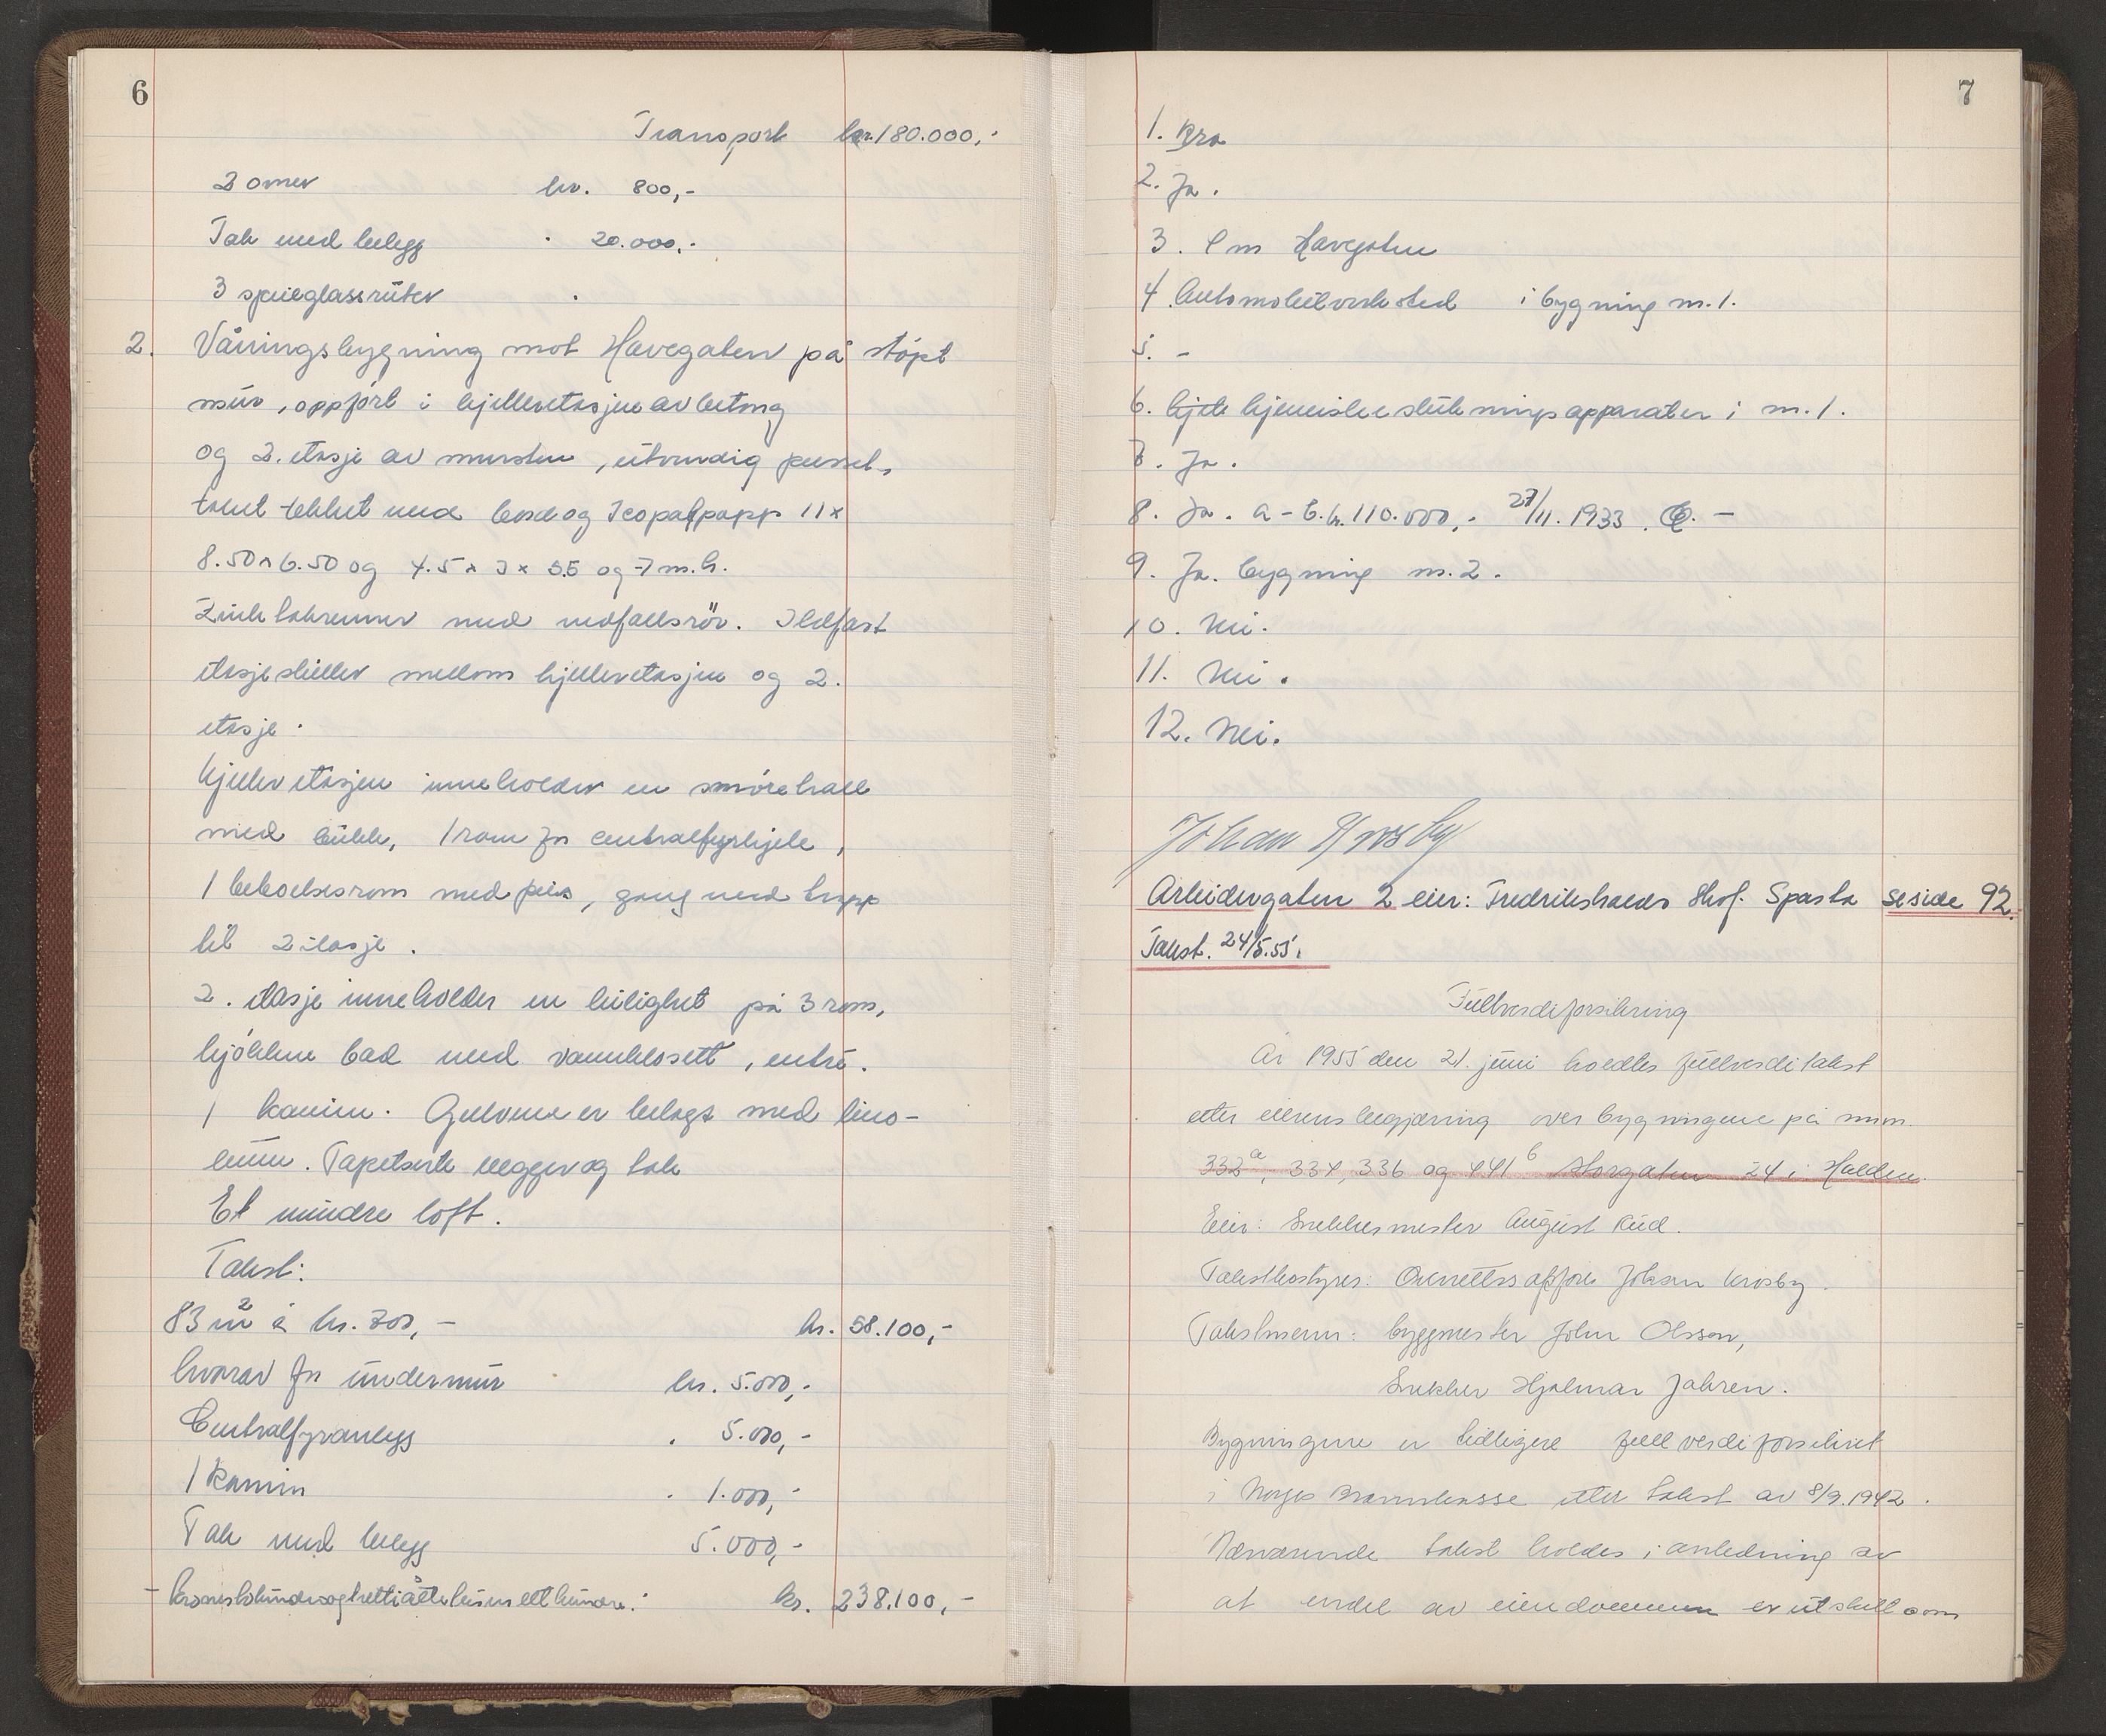 6
Transport kr. 180.000,-
2 omer kr. 800,-
Tak med belegg " 20.000,-
3 speilglassruter "
2. Våningsbygning mot Havegaten på støpt
mur, oppført i kjelleretasjen av betong
og 2. etasje av mursten, utvendig pusset,
taket tekket med bord og Icopalpapp 11 x
8.50 x 6.50 og 4.5 x 3 x 3.5 og 7 m.h.
Zink takrenner med nedfallsrör. Ildfast
etasjeskiller mellom kjelleretasjen og 2.
etasje.
Kjelleretasjen inneholder en smörehall
med bukk, 1 rom for centralfyrkjele,
1 beboelsesrom med peis, gang med trapp
til 2 etasje.
2. etasje inneholder en leilighet på 3 rom,
kjökken bad med vannklosett, entré.
1 kamin. Gulvene er belagt med lino-
leum. Tapetserte vegger og tak
Et mindre loft.
Takst:
83 m² à kr. 700,- kr. 58.100,-
hvorav for undermur kr. 5.000,-
Centralfyranlegg " 5.000,-
1 Kamin " 1.000,-
Tak med belegg 5.000,-
- kroner tohundreogtrettiåttetusenetthundre. kr. 238.100,-
7
1. Bra
2. Ja.
3. Havegaten
4. Automobilverksted i bygning m. 1.
5. -
6. kjemiske slukningsapparater i m. 1.
7. Ja.
8. Ja. a - b. kr. 110.000,- 27/11. 1933. -
9. Ja. bygning m. 2.
10. Nei.
11. Nei.
12. Nei.
Johan Grosby
Arbeidergaten 2 eier: Fredrikshalds Skof. Sparta se side 92.
Takst. 24/5.55.
Fullverdiforsikring
År 1955 den 21. juni holdtes fullverditakst
etter eierens begjæring over bygningene på mnm.
332a, 334, 336 og 441b Storgaten 24 i Halden.
Eier: Snekkermester August Rud.
Takstbestyrer: Overrettssakfører Johan Grosby.
Takstmenn: byggmester John Olsson,
Snekker Hjalmar Jahren.
Bygningene er tidligere fullverdiforsikret
i Norges Brannkasse etter takst av 8/9.1942.
Nærværende takst holdes i anledning av
at endel av eiendommen er utskilt som